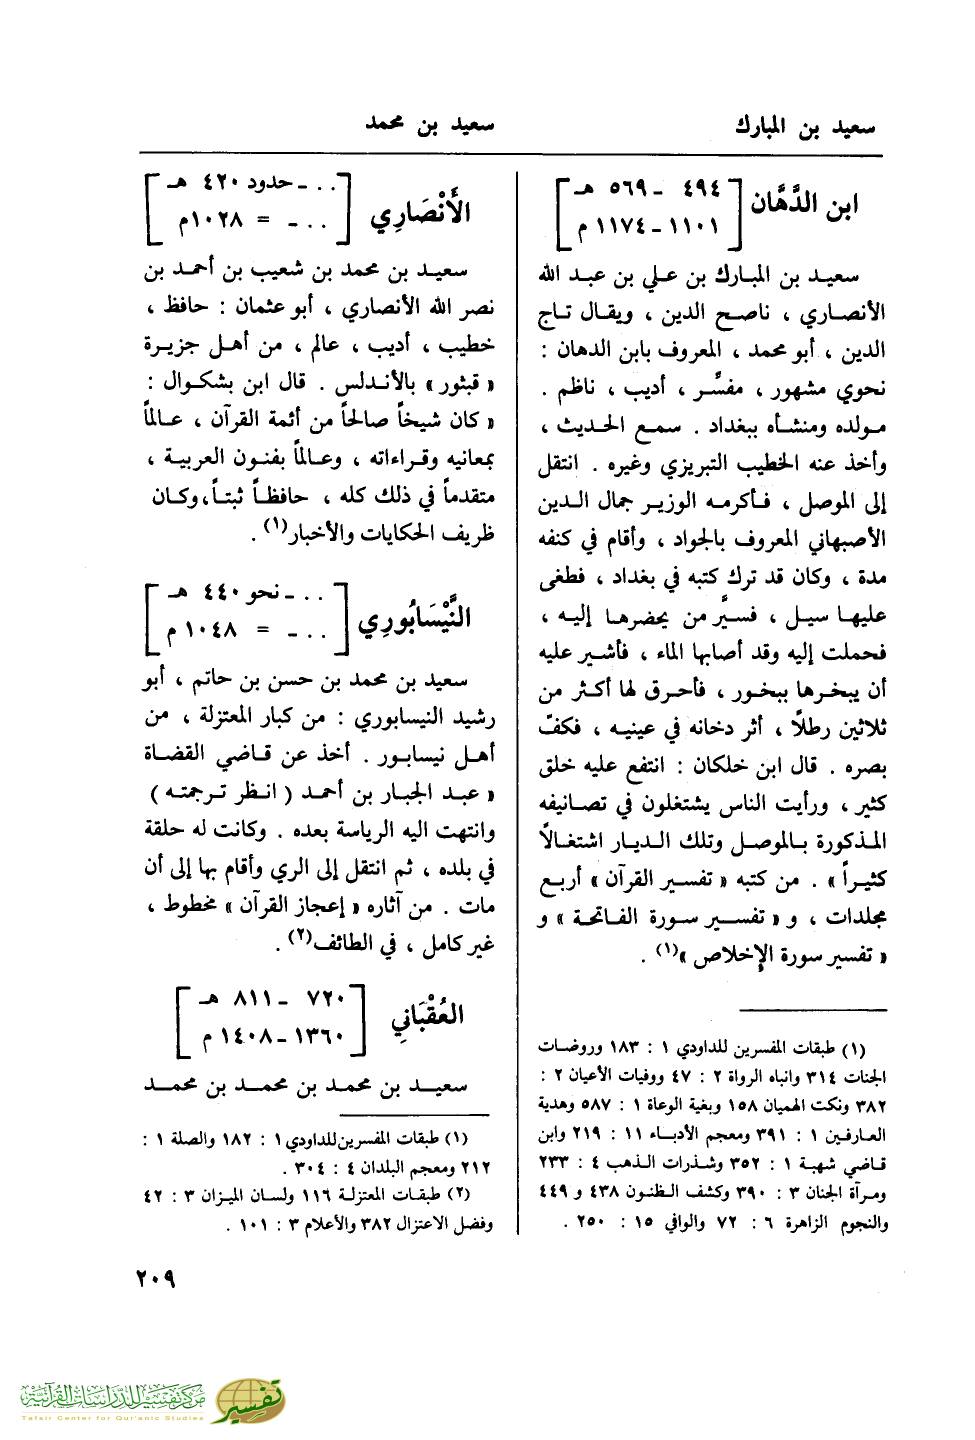 سعيد بن المبارك
سعيد بن محمد
ابن الدَّهَّان
[ ٤٩٤ - ٥٦٩ هـ
١١٠١ - ١١٧٤ م ]
سعيد بن المبارك بن علي بن عبد الله
الأنصاري ، ناصح الدين ، ويقال تاج
الدين ، أبو محمد ، المعروف بابن الدهان :
نحوي مشهور ، مفسِّر ، أديب ، ناظم .
مولده ومنشأه ببغداد . سمع الحديث ،
وأخذ عنه الخطيب التبريزي وغيره . انتقل
إلى الموصل ، فأكرمه الوزير جمال الدين
الأصبهاني المعروف بالجواد ، وأقام في كنفه
مدة ، وكان قد ترك كتبه في بغداد ، فطغى
عليها سيل ، فسيَّر من يحضرها إليه ،
فحملت إليه وقد أصابها الماء ، فأشير عليه
أن يبخرها ببخور ، فأحرق لها أكثر من
ثلاثين رطلاً ، أثر دخانه في عينيه ، فكفّ
بصره . قال ابن خلكان : انتفع عليه خلق
كثير ، ورأيت الناس يشتغلون في تصانيفه
المذكورة بالموصل وتلك الديار اشتغالاً
كثيراً » . من كتبه « تفسير القرآن » أربع
مجلدات ، و « تفسير سورة الفاتحة » و
« تفسير سورة الإخلاص »(١) .
(١) طبقات المفسرين للداودي ١ : ١٨٣ وروضات
الجنات ٣١٤ وانباه الرواة ٢ : ٤٧ ووفيات الأعيان ٢ :
٣٨٢ ونكت الهميان ١٥٨ وبغية الوعاة ١ : ٥٨٧ وهدية
العارفين ١ : ٣٩١ ومعجم الأدباء ١١ : ٢١٩ وابن
قاضي شهبة ١ : ٣٥٢ وشذرات الذهب ٤ : ٢٣٣
ومرآة الجنان ٣ : ٣٩٠ وكشف الظنون ٤٣٨ و ٤٤٩
والنجوم الزاهرة ٦ : ٧٢ والوافي ١٥ : ٢٥٠ .
الأَنْصَارِي
[ . . - حدود ٤٢٠ هـ
. . - = ١٠٢٨م ]
سعيد بن محمد بن شعيب بن أحمد بن
نصر الله الأنصاري ، أبو عثمان : حافظ ،
خطيب ، أديب ، عالم ، من أهل جزيرة
« قبثور » بالأندلس . قال ابن بشكوال :
« كان شيخاً صالحاً من أئمة القرآن ، عالماً
بمعانيه وقراءاته ، وعالماً بفنون العربية ،
متقدماً في ذلك كله ، حافظاً ثبتاً، وكان
ظريف الحكايات والأخبار(١) .
النَّيْسَابُورِي
[ . . - نحو ٤٤٠ هـ
. . - = ١٠٤٨ م ]
سعيد بن محمد بن حسن بن حاتم ، أبو
رشيد النيسابوري : من كبار المعتزلة ، من
أهل نيسابور . أخذ عن قاضي القضاة
« عبد الجبار بن أحمد ( انظر ترجمته )
وانتهت اليه الرياسة بعده . وكانت له حلقة
في بلده ، ثم انتقل إلى الري وأقام بها إلى أن
مات . من آثاره « إعجاز القرآن » مخطوط ،
غير كامل ، في الطائف(٢) .
العُقْبَانِي
[ ٧٢٠ - ٨١١ هـ
١٣٦٠ - ١٤٠٨ م ]
سعيد بن محمد بن محمد بن محمد
(١) طبقات المفسرين للداودي ١ : ١٨٢ والصلة ١ :
٢١٢ ومعجم البلدان ٤ : ٣٠٤ .
(٢) طبقات المعتزلة ١١٦ ولسان الميزان ٣ : ٤٢
وفضل الاعتزال ٣٨٢ والأعلام ٣ : ١٠١ .
٢٠٩
مركز تفسير للدراسات القرآنية
Tafsir Center for Qur'anic Studies
تفسير